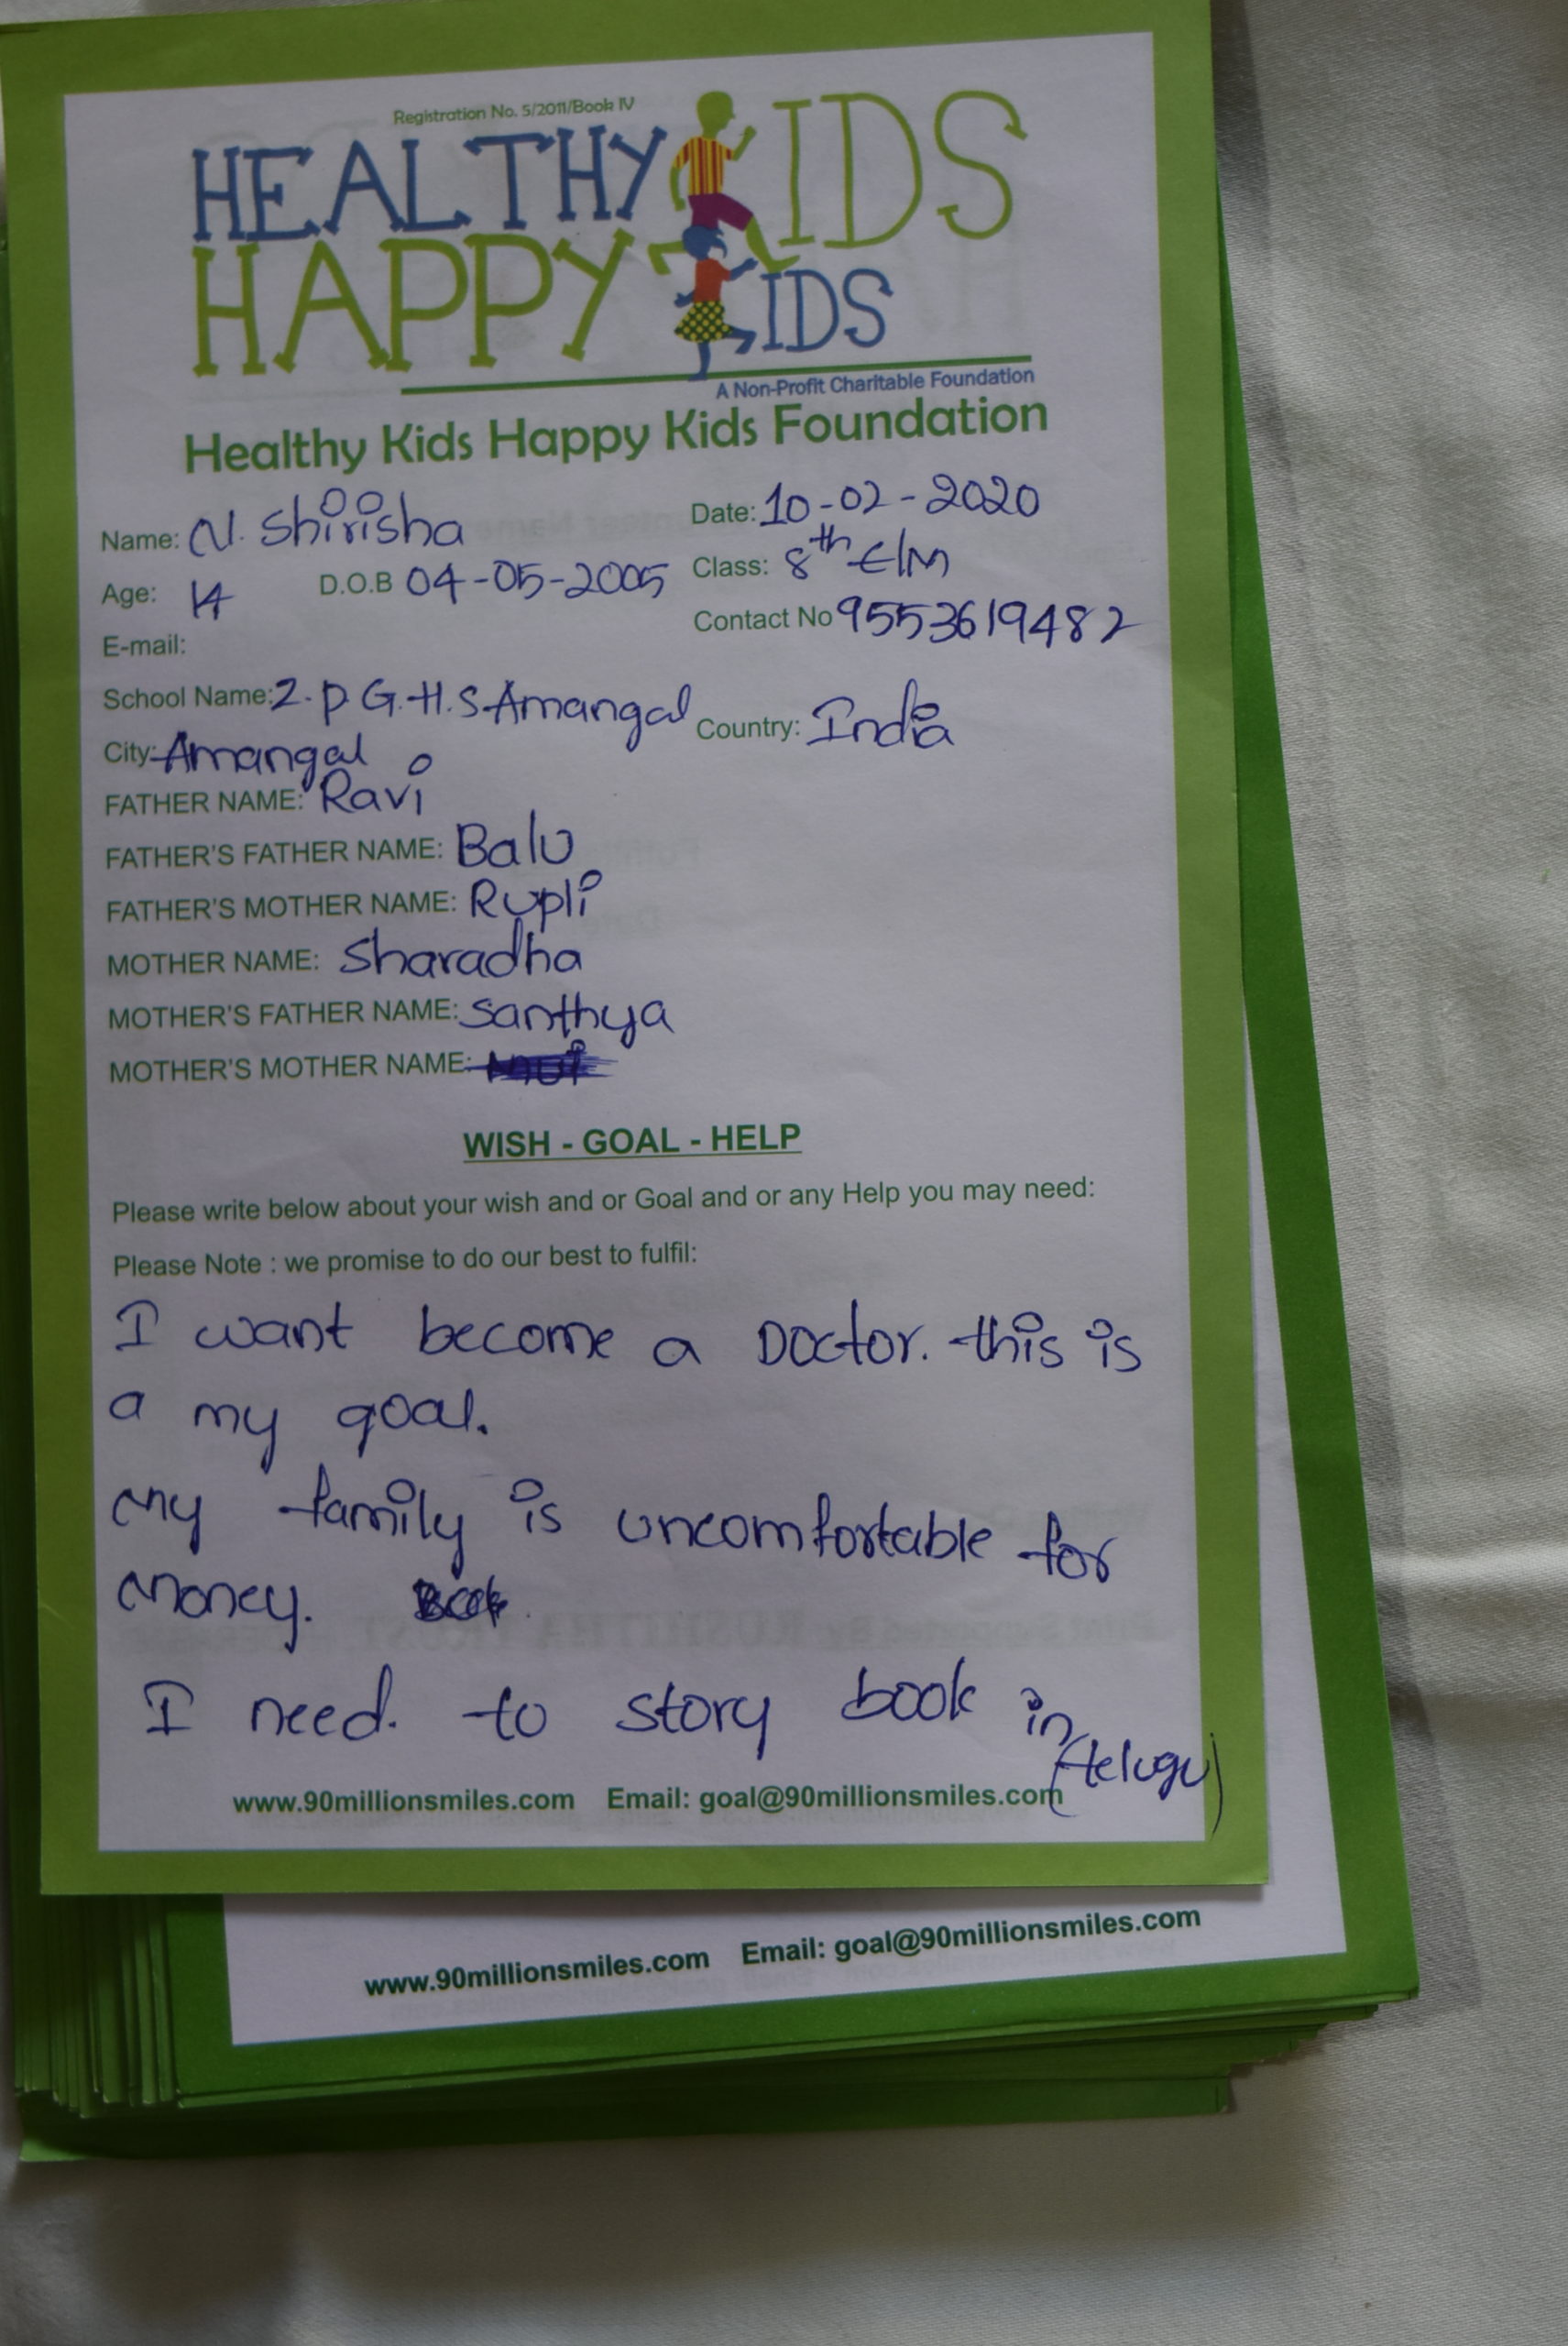 Registration No. 5/2011/Book IV
HEALTHY KIDS
HAPPY KIDS
A Non-Profit Charitable Foundation
Healthy Kids Happy Kids Foundation
Name: N. Shirisha Date: 10-02-2020
Age: 14 D.O.B 04-05-2005 Class: 8th E/M
E-mail: Contact No 9553619482
School Name: Z.P.G.H.S. Amangal
City: Amangal Country: India
FATHER NAME: Ravi
FATHER'S FATHER NAME: Balu
FATHER'S MOTHER NAME: Rupli
MOTHER NAME: Sharadha
MOTHER'S FATHER NAME: Santhya
MOTHER'S MOTHER NAME:
WISH - GOAL - HELP
Please write below about your wish and or Goal and or any Help you may need:
Please Note : we promise to do our best to fulfil:
I want become a Doctor. this is
a my goal.
My family is uncomfortable for
money.
I need. to story book in
(telugu)
www.90millionsmiles.com Email: goal@90millionsmiles.com
www.90millionsmiles.com Email: goal@90millionsmiles.com